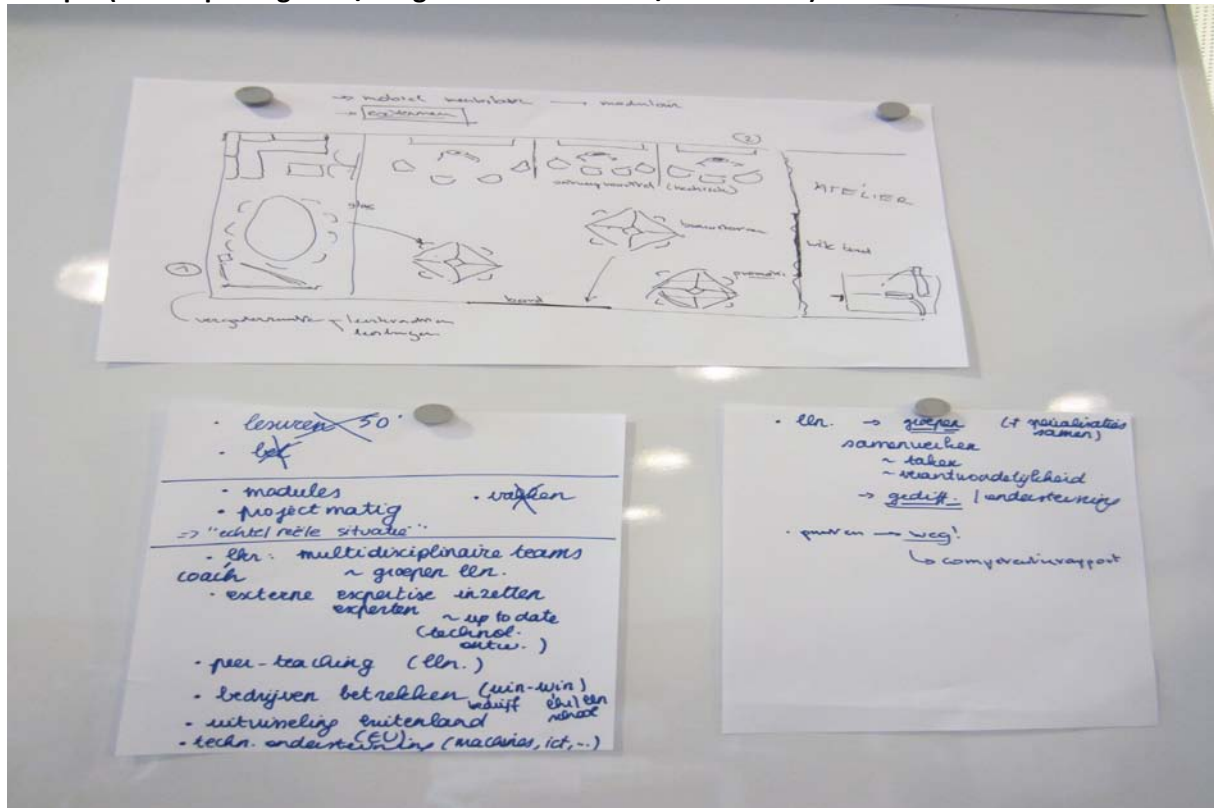 → mobiel meubilair → modulair
→ examen
(2)
ontwerpwerkbl (technisch)
ATELIER
glas
brainstormen
wit bord
promoti.
(1)
bord
vergaderruimte leerkrachten
leerlingen
• lesuren 50'
• bel
• modules • vakken
• projectmatig
=> "echte/reële situatie"
• lkr: multidisciplinaire teams
coach ~ groepen lln.
• externe expertise inzetten
experten
~ up to date
(technol.
ontw.)
• peer-teaching (lln.)
• bedrijven betrekken (win-win)
bedrijf lkr/lln
school
• uitwisseling buitenland
(EU)
• techn. ondersteuning (machines, ict, ..)
• lln. → groepen (+ specialisaties
samen)
samenwerken
~ taken
~ verantwoordelijkheid
→ gediff. / ondersteuning
• punten → weg!
↳ competentierapport